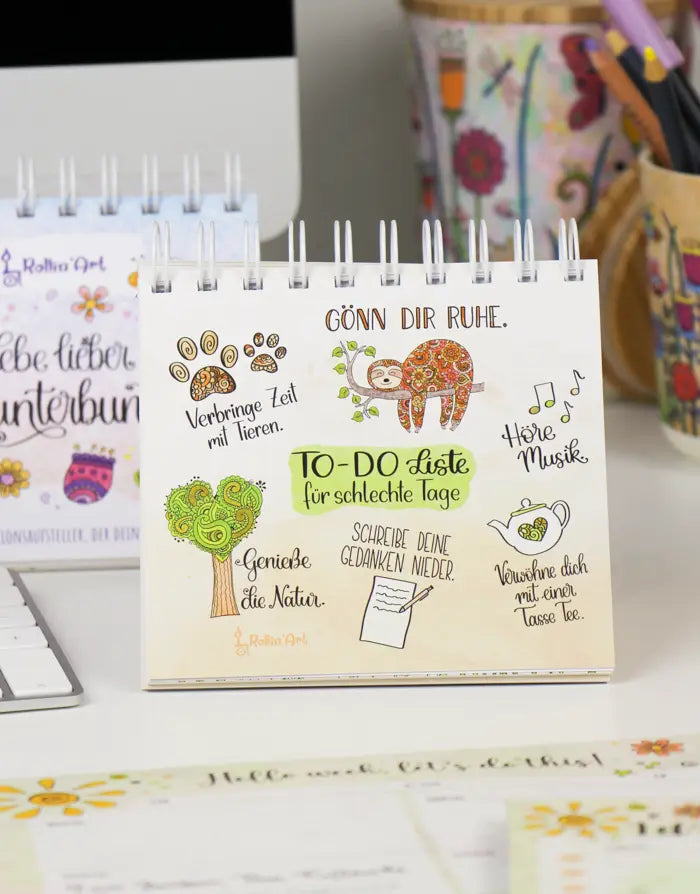 Rollin'Art
lieber
GÖNN DIR RUHE.
Verbringe Zeit
mit Tieren.
Höre
Musik.
TO-DO Liste
für schlechte Tage
SCHREIBE DEINE
GEDANKEN NIEDER.
Genieße
die Natur.
Verwöhne dich
mit einer
Tasse Tee.
Rollin'Art
Hello week, let's do this!